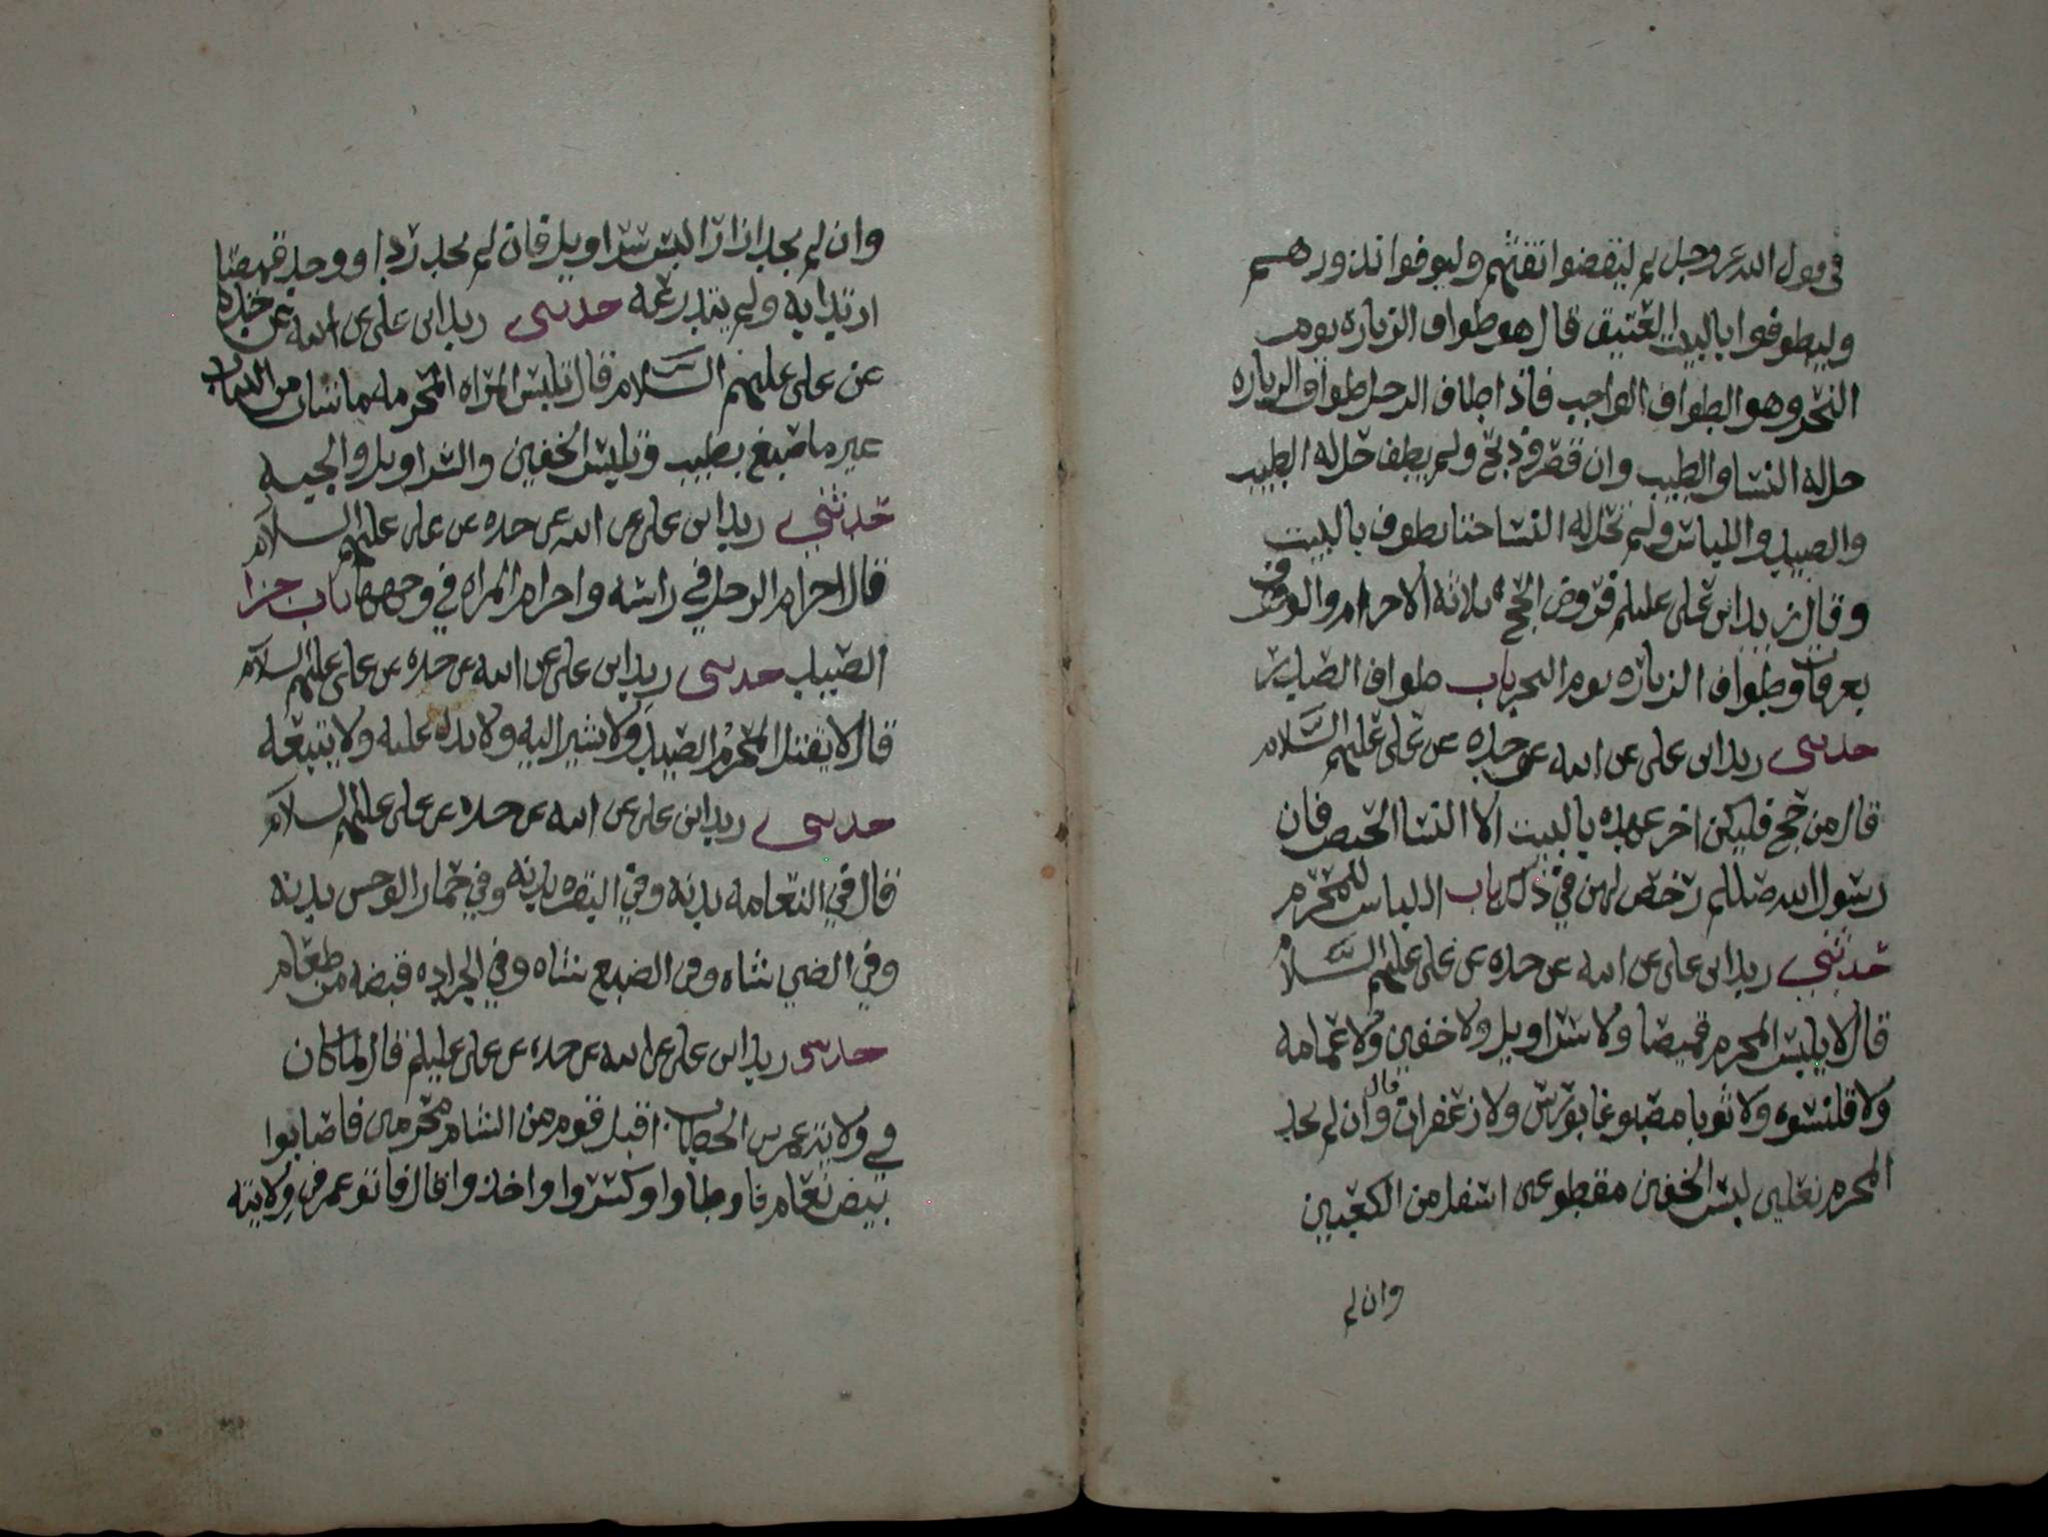 في قول الله عز وجل ثم ليقضوا تفثهم وليوفوا نذورهم
وليطوفوا بالبيت العتيق قال هو طواف الزياره يوم
النحر وهو الطواف الواجب فاذا طاف الرجل طواف الزياره
حل له النسا والطيب وان قصر وذبح ولم يطف حل له الطيب
والصيد واللباس ولم تحل له النسا حتا يطوف بالبيت
وقال زيد ابن علي عليلم فروض الحج ثلاثه الاحرام والوقوف
بعرفات وطواف الزياره يوم النحر باب طواف الصدر
حدثني زيد ابن علي عن ابيه عن جده عن علي عليهم السلام
قال من حج فليكن اخر عهده بالبيت الا النسا الحيض فان
رسول الله صللم رخص لهن في ذلك باب اللباس للمحرم
حدثني زيد ابن علي عن ابيه عن جده عن علي عليهم السلام
قال لا يلبس المحرم قميصا ولا سراويل ولا خفين ولا عمامه
ولا قلنسوه ولا ثوبا مصبوغا بورس ولا زعفران قال وان لم يجد
المحرم نعلين لبس الخفين مقطوعين اسفل من الكعبين
وان لم
وان لم يجد ازارا لبس سراويل فان لم يجد ردا ووجد قميصا
ارتدا به ولم يتدرعه حدثني زيد ابن علي عن ابيه عن جده
عن علي عليهم السلام قال تلبس المراه المحرمه ما شات من الثياب
غير ما صبغ بطيب وتلبس الخفين والسراويل والجبه
حدثني زيد ابن علي عن ابيه عن جده عن علي عليهم السلام
قال احرام الرجل في راسه واحرام المراه في وجهها باب جزا
الصيد حدثني زيد ابن علي عن ابيه عن جده عن علي عليهم السلام
قال لا يقتل المحرم الصيد ولا يشير اليه ولا يدل عليه ولا يتبعه
حدثني زيد ابن علي عن ابيه عن جده عن علي عليهم السلام
قال في النعامه بدنه وفي البقره بدنه وفي حمار الوحش بدنه
وفي الضبي شاه وفي الضبع شاه وفي الجراده قبضه من طعام
حدثني زيد ابن علي عن ابيه عن جده عن علي عليلم قال لما كان
في ولايه عمر بن الخطاب اقبل قوم من الشام محرمين فاصابوا
بيض نعام فاوطاوا وكسروا واخذوا قال فاتو عمر في ولايته